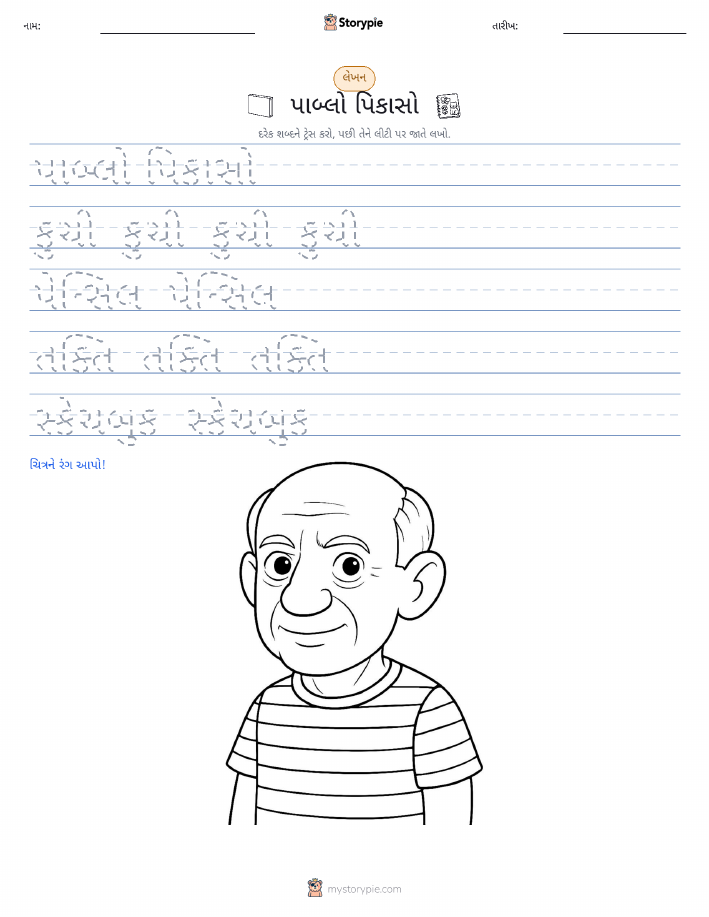 નામ: Storypie તારીખ:
લેખન
પાબ્લો પિકાસો
દરેક શબ્દને ટ્રેસ કરો, પછી તેને લીટી પર જાતે લખો.
પાબ્લો પિકાસો
કુચી કુચી કુચી કુચી
પેન્સિલ પેન્સિલ
તક્તિ તક્તિ તક્તિ
સ્કેચબુક સ્કેચબુક
ચિત્રને રંગ આપો!
mystorypie.com